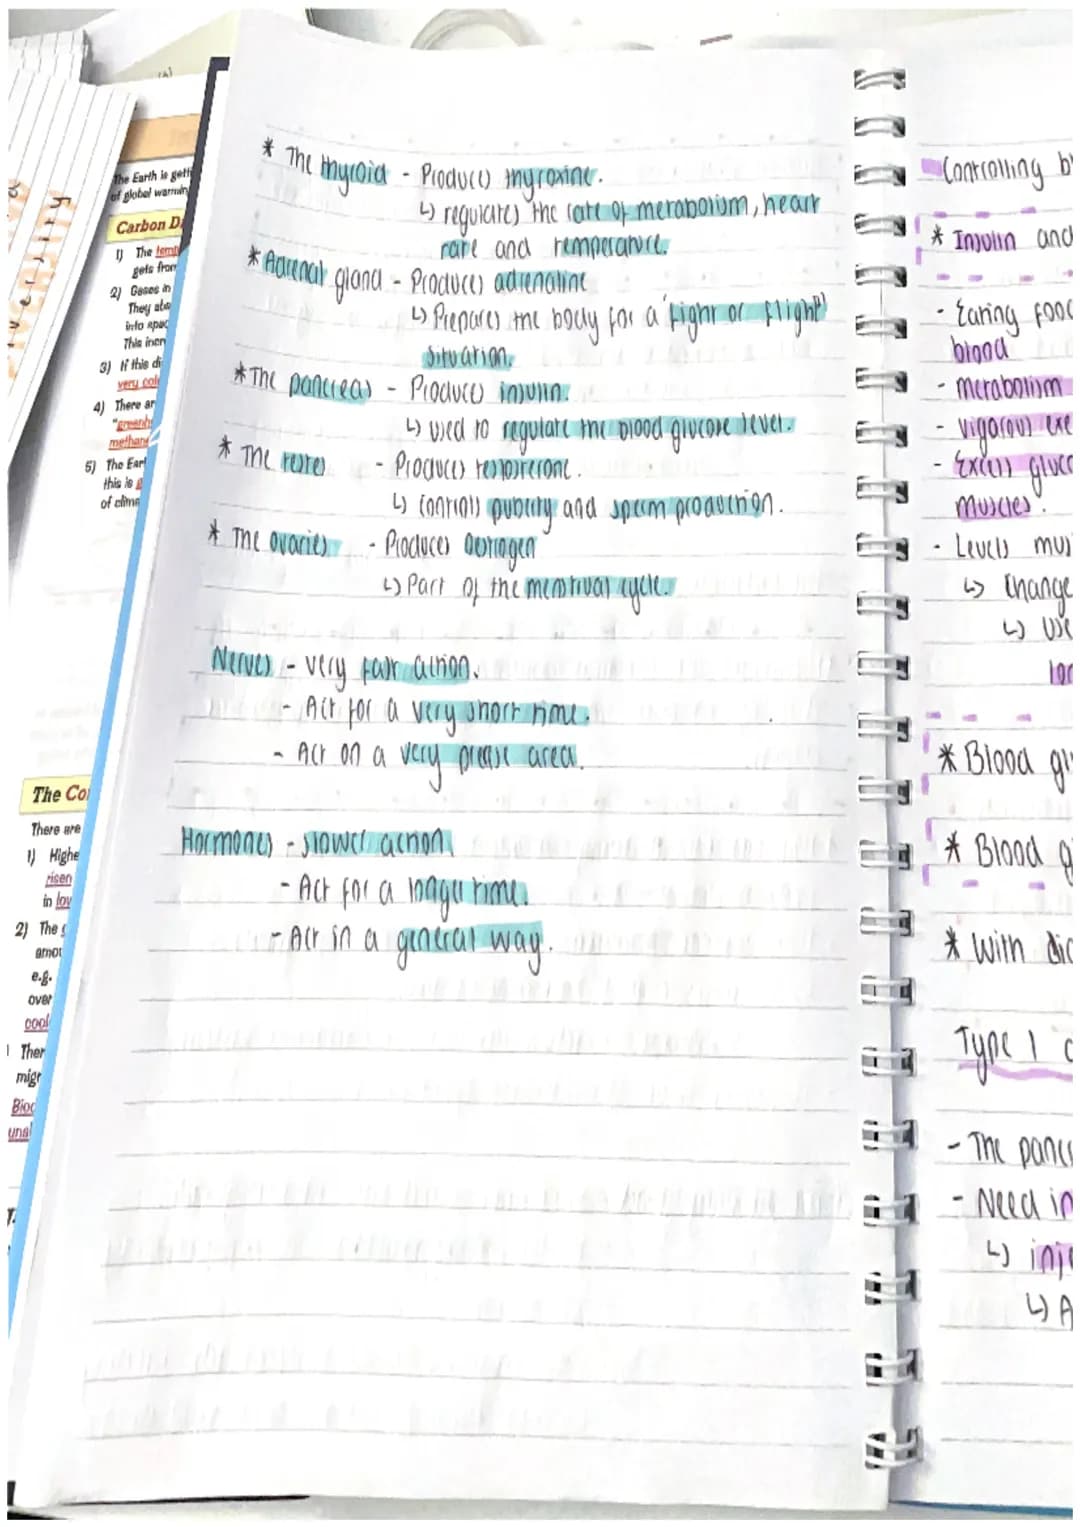 The Earth is gett
of global warmin
Carbon Di
1) The temp
gets from
2) Gases in
They abs
into spac
This incr
3) If this di
very col
4) There ar
"greenh
methane
5) The Eart
this is
of clima
The Co
There are
1) Highe
risen
in low
2) The g
amou
e.g.
over
cool
Ther
migr
Biod
unal
* The thyroid - Produces thyroxine.
↳ regulates the rate of metabolism, heart
rate and temperature.
* Adrenal gland - Produces adrenaline
↳ Prepares the body for a 'fight or flight'
situation.
* The pancreas - Produces insulin.
↳ used to regulate the blood glucose level.
* The testes - Produces testosterone.
↳ controls puberty and sperm production.
* The ovaries - Produces Oestrogen
↳ Part of the menstrual cycle.
Nerves - very fast action.
- Act for a very short time.
- Act on a very precise area.
Hormones - slower action
- Act for a longer time.
- Act in a general way.
Controlling b
* Insulin and
- Eating food
blood
- metabolism
- vigorous exe
- Excess gluco
muscles.
- Levels mus
↳ Change
↳ use
* Blood gl
* Blood g
* With dia
Type 1 d
- The pancr
- Need in
↳ inje
↳ A